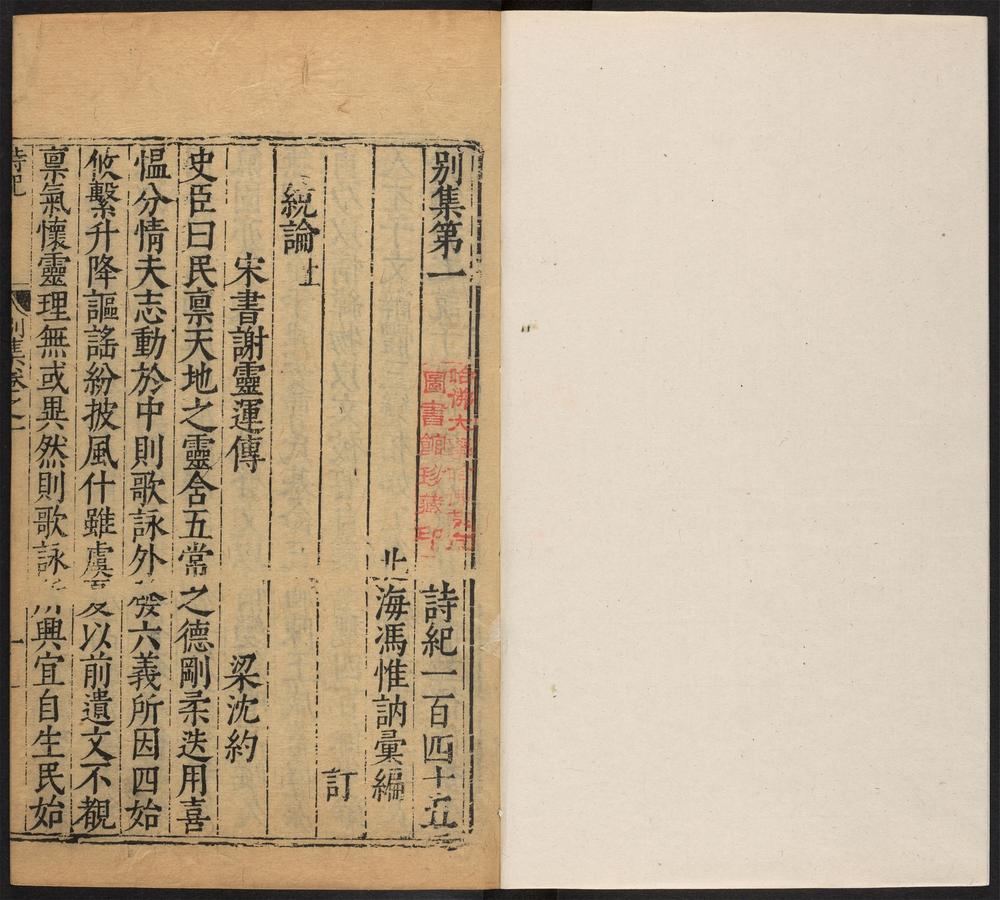 別集第一 詩紀一百四十五
北海馮惟訥彙編
訂
統論上
宋書謝靈運傳 梁沈約
史臣曰民稟天地之靈含五常之德剛柔迭用喜
慍分情夫志動於中則歌詠外發六義所因四始
攸繫升降謳謠紛披風什雖虞夏以前遺文不覩
稟氣懷靈理無或異然則歌詠所興宜自生民始
詩紀 別集卷之一 一
哈佛大學
圖書館珍藏印